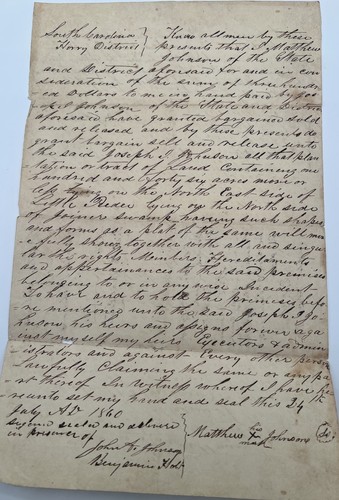 South Carolina
Horry District
Know all men by these
presents that I Matthew
Johnson of the State
and District aforesaid for and in con
sideration of the sum of three hundr
ed Dollars to me in hand paid by Jos
eph J Johnson of the State and District
aforesaid have granted bargained sold
and released and by these presents do
grant bargain sell and release unto
the said Joseph J Johnson all that plan
tation or tract of Land Containing one
hundred and forty acres more or
less lying on the North East side of
Little Pedee lying on the North side
of Joiner swamp having such shapes
and forms as a plat of the same will mor
e fully shew together with all and singu
lar the rights Members Hereditaments
and appertainances to the said premises
belonging to or in any wise Incident
To have and to hold the premises befo
re mentioned unto the said Joseph J Jo
hnson his heirs and assigns forever aga
inst myself my heirs Executors & admin
istrators and against Every other person
lawfully Claiming the same or any pa
rt thereof In witness whereof I have he
reunto set my hand and seal this 24th
July AD 1860
signed sealed and delivered
in presence of
Matthew his X mark Johnson
John A Johnson
Benjamin Holt